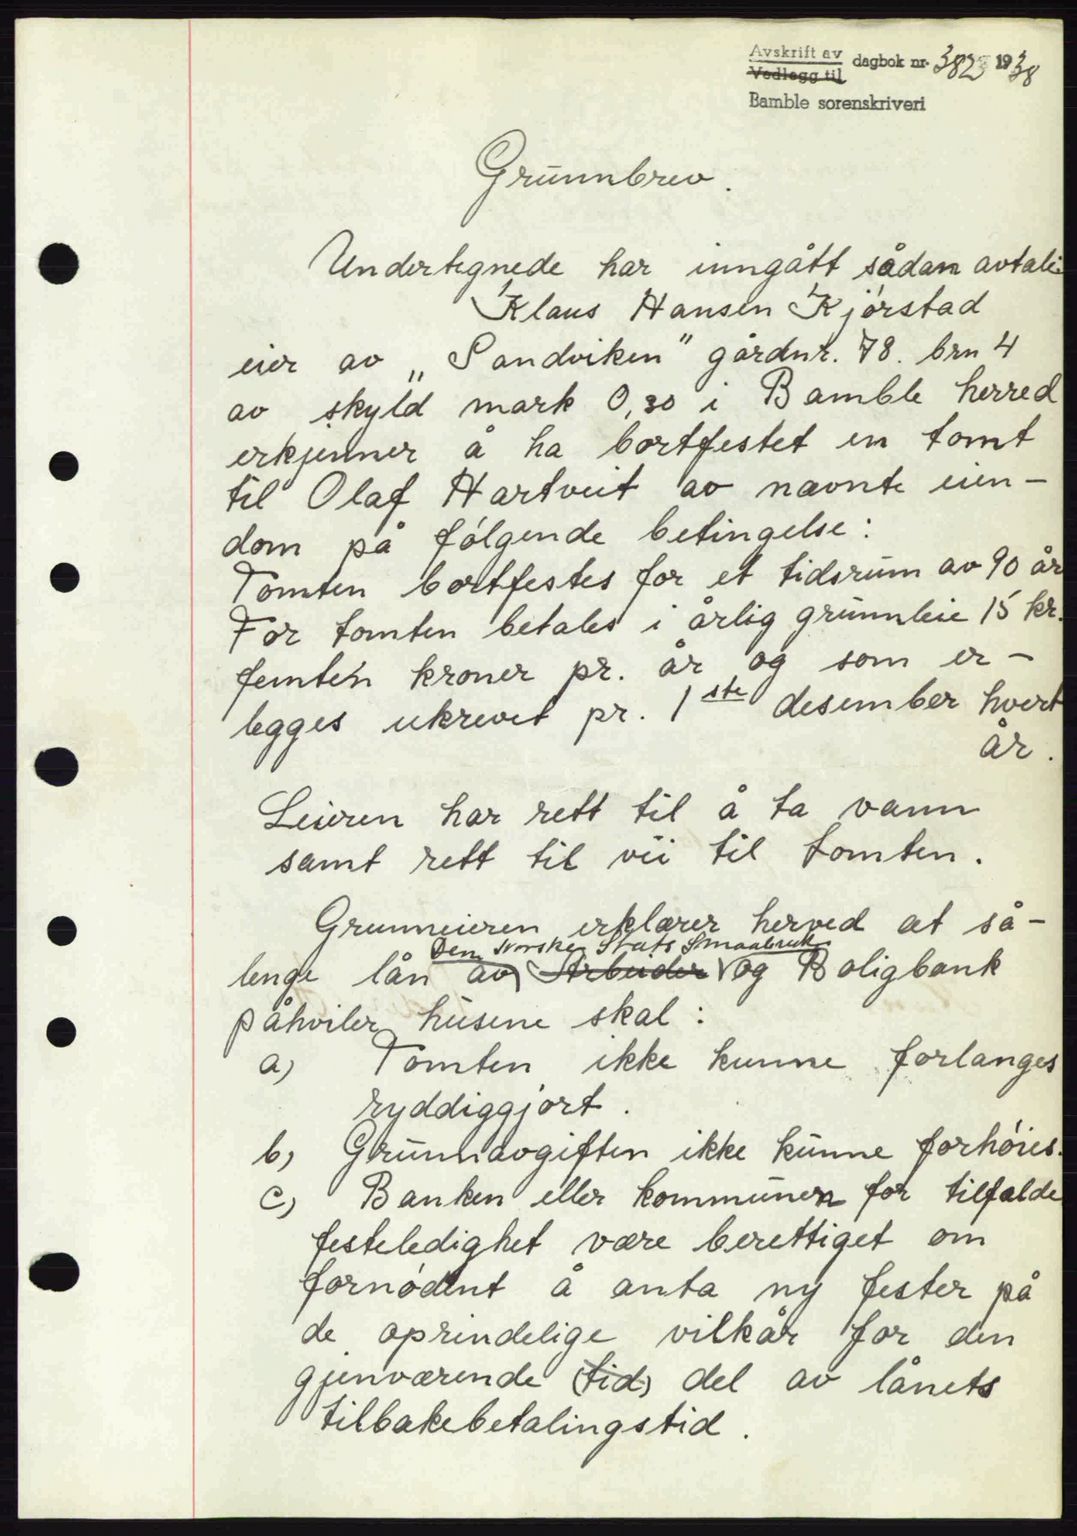 Avskrift av
Vedlegg til dagbok nr. 3823 1938
Bamble sorenskriveri
Grunnbrev.
Undertegnede har inngått sådan avtale
Klaus Hansen Kjørstad
eier av „Sandviken" gårdnr. 78. brn 4
av skyld mark 0,30 i Bamble herred
erkjenner å ha bortfestet en tomt
til Olaf Hartveit av nævnte eien-
dom på følgende betingelse:
Tomten bortfestes for et tidsrum av 90 år
For tomten betales i årlig grunnleie 15 kr.
femten kroner pr. år og som er-
legges ukrevet pr. 1ste desember hvert
år.
Leieren har rett til å ta vann
samt rett til vei til tomten.
Grunneieren erklærer herved at så-
Den norske Stats Smaabruk
lenge lån av Arbeider og Boligbank
påhviler husene skal:
a) Tomten ikke kunne forlanges
ryddiggjort.
b) Grunnavgiften ikke kunne forhøies.
c) Banken eller kommunen for tilfelde
festeledighet være berettiget om
fornødent å anta ny fester på
de oprindelige vilkår for den
gjenværende (tid) del av lånets
tilbakebetalingstid.